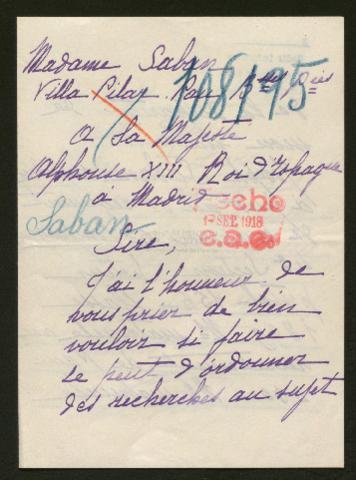 Madame Saban
Villa Pilar Pau Bses Pées
108195
A Sa Majesté
Alphonse XIII Roi d'Espagne
à Madrid
Saban
Hecho
1 SEP. 1918
Sire,
J'ai l'honneur de
vous prier de bien
vouloir si faire
se peut d'ordonner
des recherches au sujet